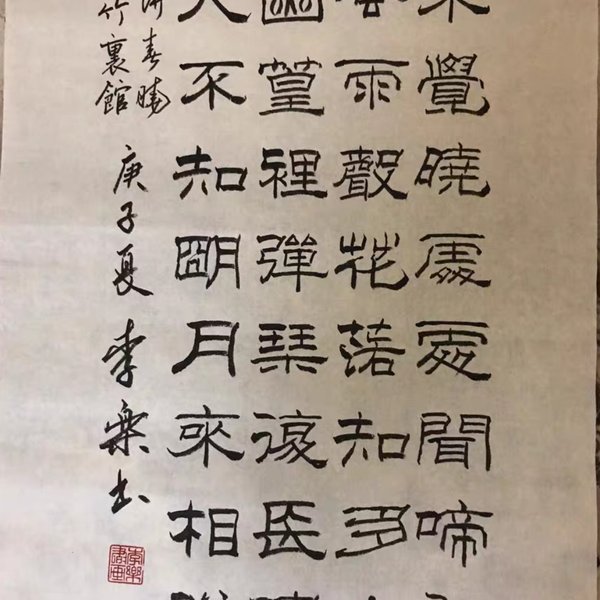 不覺曉處處聞啼
雨聲花落知多
幽篁裡彈琴復長
人不知明月來相
春曉
竹裏館 庚子夏 李樂书